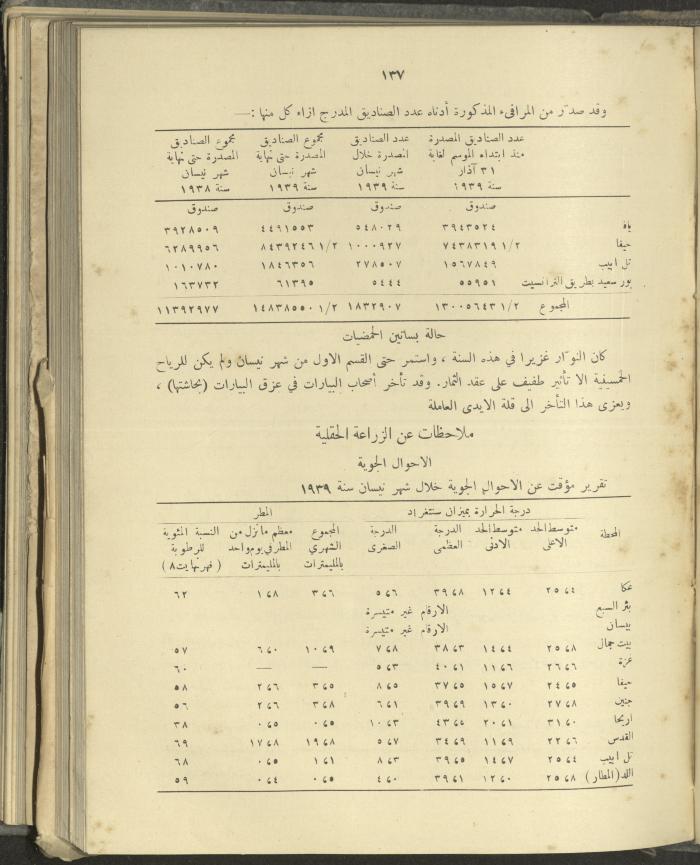 ١٣٧
وقد صدّر من المرافىء المذكورة أدناه عدد الصناديق المدرج ازاء كل منها :—
عدد الصناديق المصدرة منذ ابتداء الموسم لغاية ٣١ آذار سنة ١٩٣٩ | عدد الصناديق المصدرة خلال شهر نيسان سنة ١٩٣٩ | مجموع الصناديق المصدرة حتى نهاية شهر نيسان سنة ١٩٣٩ | مجموع الصناديق المصدرة حتى نهاية شهر نيسان سنة ١٩٣٨
صندوق | صندوق | صندوق | صندوق
يافا | ٣٩٤٣٥٢٤ | ٥٤٨٠٢٩ | ٤٤٩١٥٥٣ | ٣٩٢٨٥٠٩
حيفا | ٧٤٣٨٣١٩ ١/٢ | ١٠٠٠٩٢٧ | ٨٤٣٩٢٤٦ ١/٢ | ٦٢٨٩٩٥٦
تل ابيب | ١٥٦٧٨٤٩ | ٢٧٨٥٠٧ | ١٨٤٦٣٥٦ | ١٠١٠٧٨٠
بور سعيد بطريق الترانسيت | ٥٥٩٥١ | ٥٤٤٤ | ٦١٣٩٥ | ١٦٣٧٣٢
المجموع | ١٣٠٠٥٦٤٣ ١/٢ | ١٨٣٢٩٠٧ | ١٤٨٣٨٥٥٠ ١/٢ | ١١٣٩٢٩٧٧
حالة بساتين الحمضيات
كان النوّار غزيرا في هذه السنة ، واستمر حتى القسم الاول من شهر نيسان ولم يكن للرياح
الخمسينية الا تأثير طفيف على عقد الثمار. وقد تأخر أصحاب البيارات في عزق البيارات (بحاشتها) ،
ويعزى هذا التأخر الى قلة الايدى العاملة
ملاحظات عن الزراعة الحقلية
الاحوال الجوية
تقرير مؤقت عن الاحوال الجوية خلال شهر نيسان سنة ١٩٣٩
درجة الحرارة بميزان سنتغراد | المطر
المحطة | متوسط الحد الاعلى | متوسط الحد الادنى | الدرجة العظمى | الدرجة الصغرى | المجموع الشهري بالمليمترات | معظم ما نزل من المطر في يوم واحد بالمليمترات | النسبة المئوية للرطوبة (فهرنهايت ٨)
عكا | ٢٥،٤ | ١٢،٤ | ٣٩،٨ | ٥،٦ | ٣،٦ | ١،٨ | ٦٢
بئر السبع | الارقام غير متيسرة
بيسان | الارقام غير متيسرة
بيت جمال | ٢٥،٨ | ١٤،٤ | ٣٨،٣ | ٧،٨ | ١٠،٩ | ٦،٠ | ٥٧
غزة | ٢٦،٦ | ١١،٦ | ٤٠،١ | ٥،٣ | — | — | ٦٠
حيفا | ٢٤،٥ | ١٥،٧ | ٣٧،٥ | ٨،٥ | ٣،٥ | ٢،٦ | ٥٨
جنين | ٢٧،٨ | ١٣،٠ | ٣٩،٩ | ٦،١ | ٣،٨ | ٢،٦ | ٥٦
اريحا | ٣١،٠ | ٢٠،١ | ٤٣،٥ | ١٠،٣ | ٠،٥ | ٠،٥ | ٣٨
القدس | ٢٢،٦ | ١١،٩ | ٣٤،٩ | ٥،٧ | ١٩،٨ | ١٧،٨ | ٦٩
تل ابيب | ٢٥،٤ | ١٤،٧ | ٣٩،٥ | ٨،٣ | ١،١ | ٠،٥ | ٦٨
اللد (المطار) | ٢٥،٨ | ١٢،٠ | ٣٩،١ | ٤،٠ | ٠،٥ | ٠،٤ | ٥٩